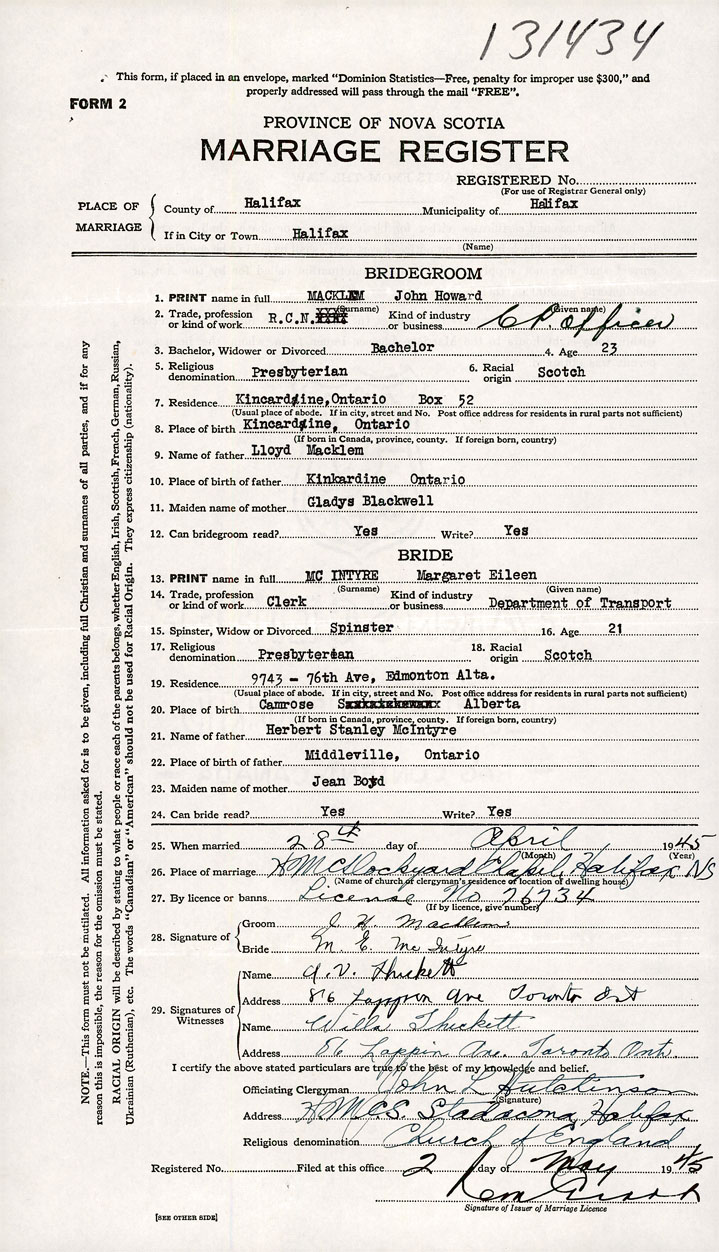 131434
This form, if placed in an envelope, marked "Dominion Statistics—Free, penalty for improper use $300," and
properly addressed will pass through the mail "FREE".
FORM 2
PROVINCE OF NOVA SCOTIA
MARRIAGE REGISTER
REGISTERED No.
(For use of Registrar General only)
PLACE OF MARRIAGE
County of Halifax Municipality of Halifax
If in City or Town Halifax
(Name)
BRIDEGROOM
1. PRINT name in full MACKLEM John Howard
(Surname) (Given name)
2. Trade, profession or kind of work R.C.N. Kind of industry or business C.P. Officer
3. Bachelor, Widower or Divorced Bachelor 4. Age 23
5. Religious denomination Presbyterian 6. Racial origin Scotch
7. Residence Kincardine, Ontario Box 52
(Usual place of abode. If in city, street and No. Post office address for residents in rural parts not sufficient)
8. Place of birth Kincardine, Ontario
(If born in Canada, province, county. If foreign born, country)
9. Name of father Lloyd Macklem
10. Place of birth of father Kinkardine Ontario
11. Maiden name of mother Gladys Blackwell
12. Can bridegroom read? Yes Write? Yes
BRIDE
13. PRINT name in full MC INTYRE Margaret Eileen
(Surname) (Given name)
14. Trade, profession or kind of work Clerk Kind of industry or business Department of Transport
15. Spinster, Widow or Divorced Spinster 16. Age 21
17. Religious denomination Presbyterian 18. Racial origin Scotch
19. Residence 9743 - 76th Ave, Edmonton Alta.
(Usual place of abode. If in city, street and No. Post office address for residents in rural parts not sufficient)
20. Place of birth Camrose Alberta
(If born in Canada, province, county. If foreign born, country)
21. Name of father Herbert Stanley McIntyre
22. Place of birth of father Middleville, Ontario
23. Maiden name of mother Jean Boyd
24. Can bride read? Yes Write? Yes
25. When married 28th day of April 1945
(Month) (Year)
26. Place of marriage HMC Dockyard Chapel, Halifax NS
(Name of church or clergyman's residence or location of dwelling house)
27. By licence or banns License No. 76734
(If by licence, give number)
28. Signature of
Groom J. H. Macklem
Bride M. E. McIntyre
29. Signatures of Witnesses
Name A. V. Thickett
Address 86 Lappin Ave Toronto Ont
Name Willa Thickett
Address 86 Lappin Ave. Toronto Ont.
I certify the above stated particulars are true to the best of my knowledge and belief.
Officiating Clergyman John L Hutchinson
(Signature)
Address HMCS. Stadacona, Halifax
Religious denomination Church of England
Registered No. Filed at this office 2 day of May 1945
Signature of Issuer of Marriage Licence
[SEE OTHER SIDE]
NOTE.—This form must not be mutilated. All information asked for is to be given, including full Christian and surnames of all parties, and if for any
reason this is impossible, the reason for the omission must be stated.
RACIAL ORIGIN will be described by stating to what people or race each of the parents belongs, whether English, Irish, Scottish, French, German, Russian,
Ukrainian (Ruthenian), etc. The words "Canadian" or "American" should not be used for Racial Origin. They express citizenship (nationality).